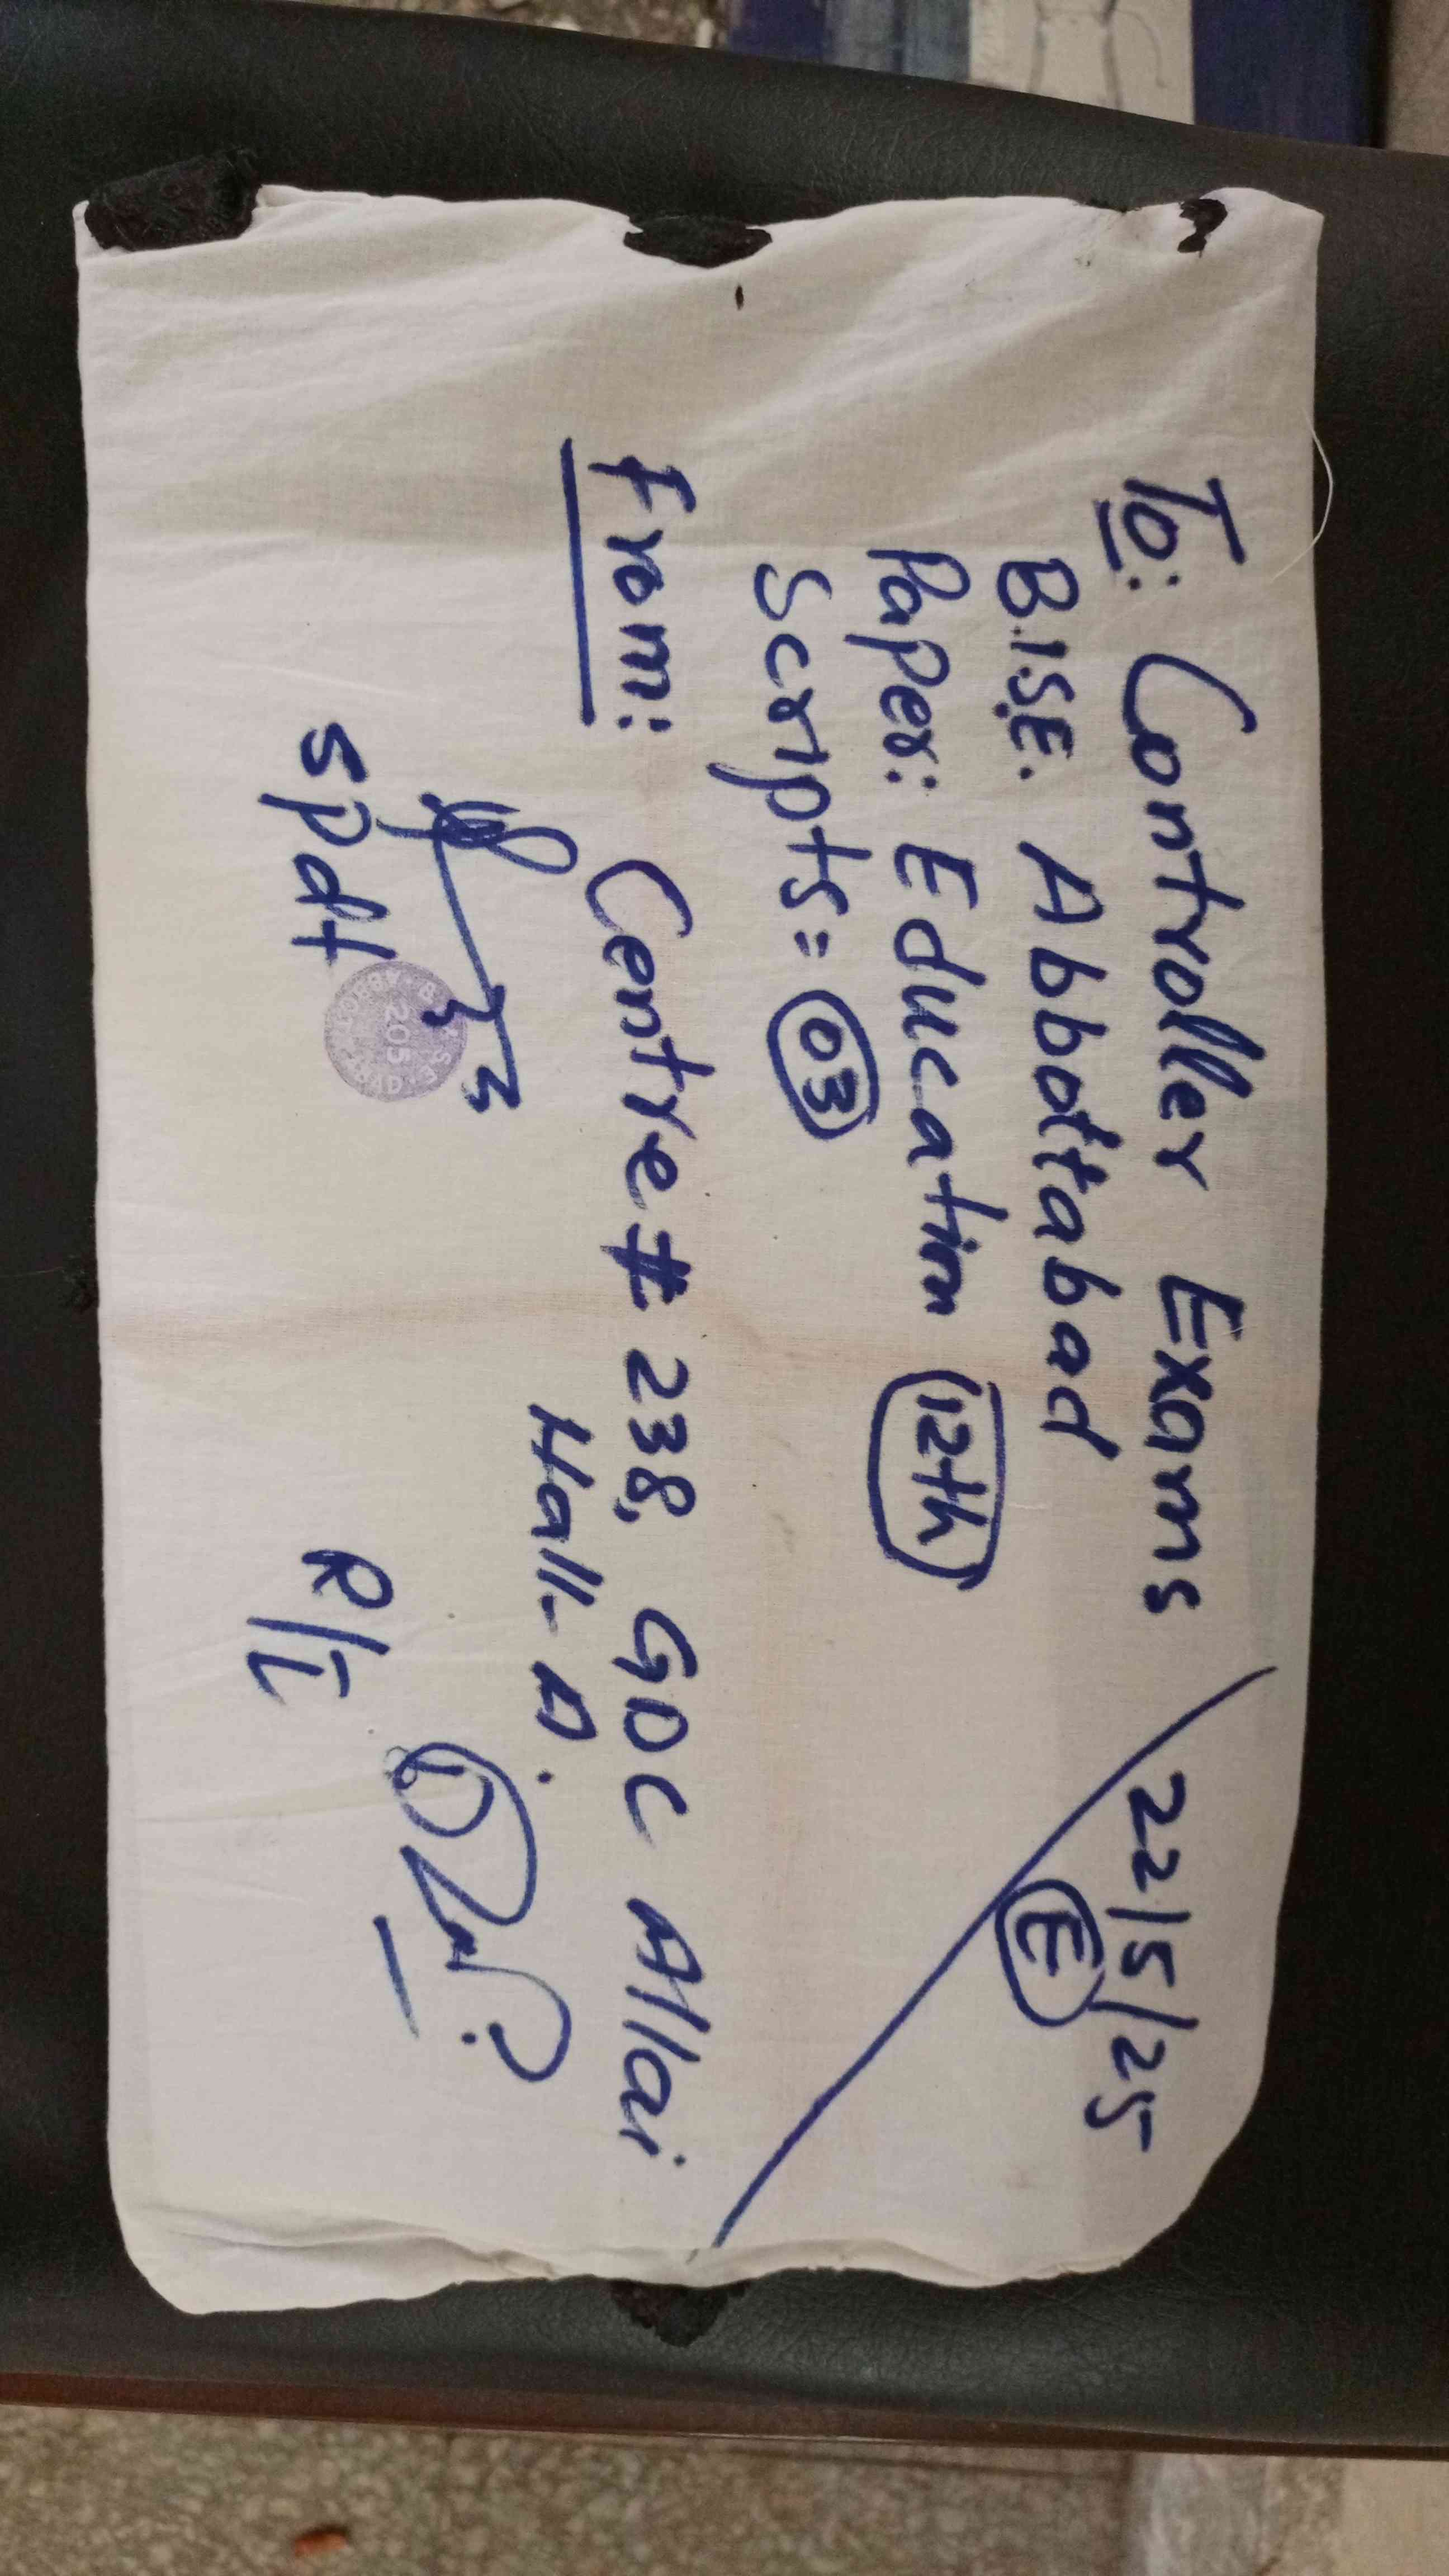 To: Controller Exams
22/5/25
B.I.S.E. Abbottabad
E
Paper: Education 12th
Scripts = 03
From:
Centre # 238, GDC Allai
Hall-A.
Spdt
R/I
205